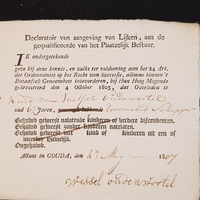 Declaratoir van aangeving van Lijken, aan de
gequalificeerde van het Plaatzelijk Bestuur.
IK ondergetekende
geve bij deze kennis, en zulks ter voldoening aan het 24 Art.
der Ordonnantie op het Recht van Successie, alomme binnen 't
Bataafsch Gemeenebest intevorderen, bij Hun Hoog Mogende
gearresteerd den 4 October 1805, dat Overleden is
Kind van Wessel Oudenwortel
oud 6 Jaren,
Gehuwd geweest zonder kinderen of verdere bloedverwanten.
Gehuwd geweest zonder kinderen natelaten.
Gehuwd geweest met kind of kinderen uit een of
meerder Huwelijk.
Ongehuwd.
Actum in GOUDA, den May 1807
Wessel oudenwortel